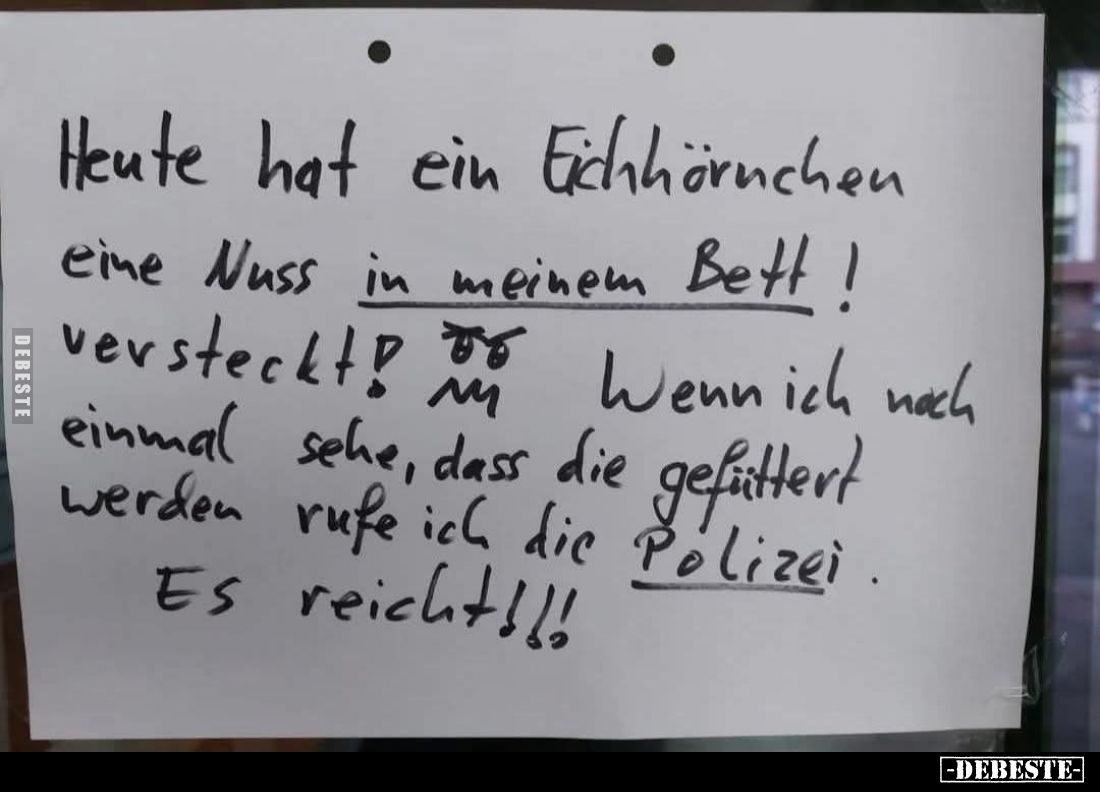 Heute hat ein Eichhörnchen
eine Nuss in meinem Bett!
versteckt!
Wenn ich noch
einmal sehe, dass die gefüttert
werden rufe ich die Polizei.
Es reicht!!!
DEBESTE
-DEBESTE-